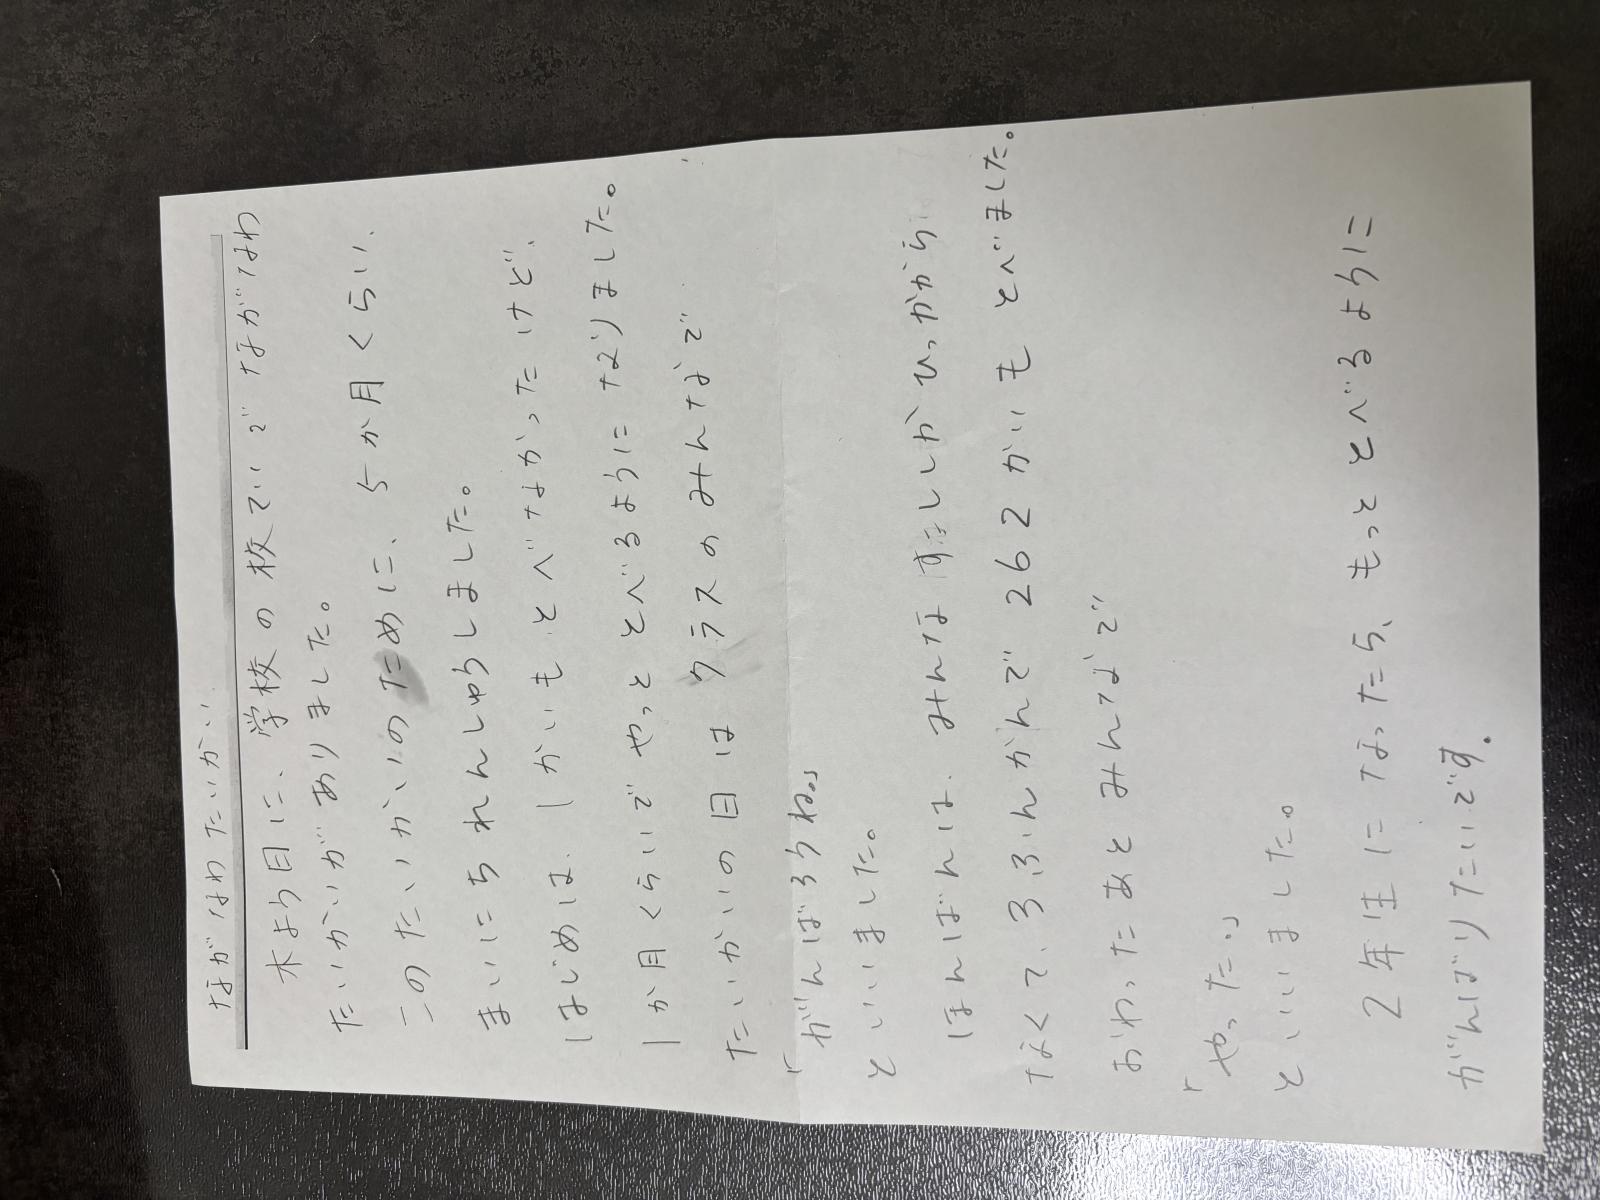 ながなわたいかい
木よう日に、学校の校ていでながなわ
たいかいがありました。
このたいかいのために、5か月くらい、
まいにちれんしゅうしました。
はじめは、1かいもとべなかったけど、
1か月くらいでやっととべるようになりました。
たいかいの日はクラスのみんなで、
「がんばろうね。」
といいました。
ほんばんは、みんなすこししかひっかから
なくて、3ぷんかんで262かいもとべました。
おわったあとみんなで
「やった。」
といいました。
2年生になったら、もっととべるように
がんばりたいです。